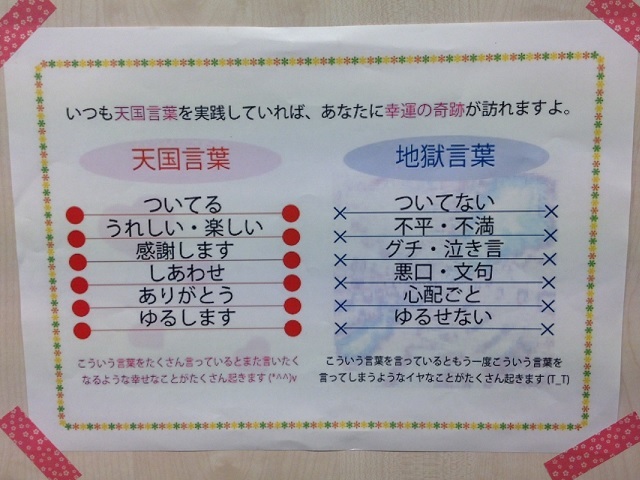 いつも天国言葉を実践していれば、あなたに幸運の奇跡が訪れますよ。
天国言葉
ついてる
うれしい・楽しい
感謝します
しあわせ
ありがとう
ゆるします
こういう言葉をたくさん言っているとまた言いたく
なるような幸せなことがたくさん起きます(*^^)v
地獄言葉
ついてない
不平・不満
グチ・泣き言
悪口・文句
心配ごと
ゆるせない
こういう言葉を言っているともう一度こういう言葉を
言ってしまうようなイヤなことがたくさん起きます(T_T)